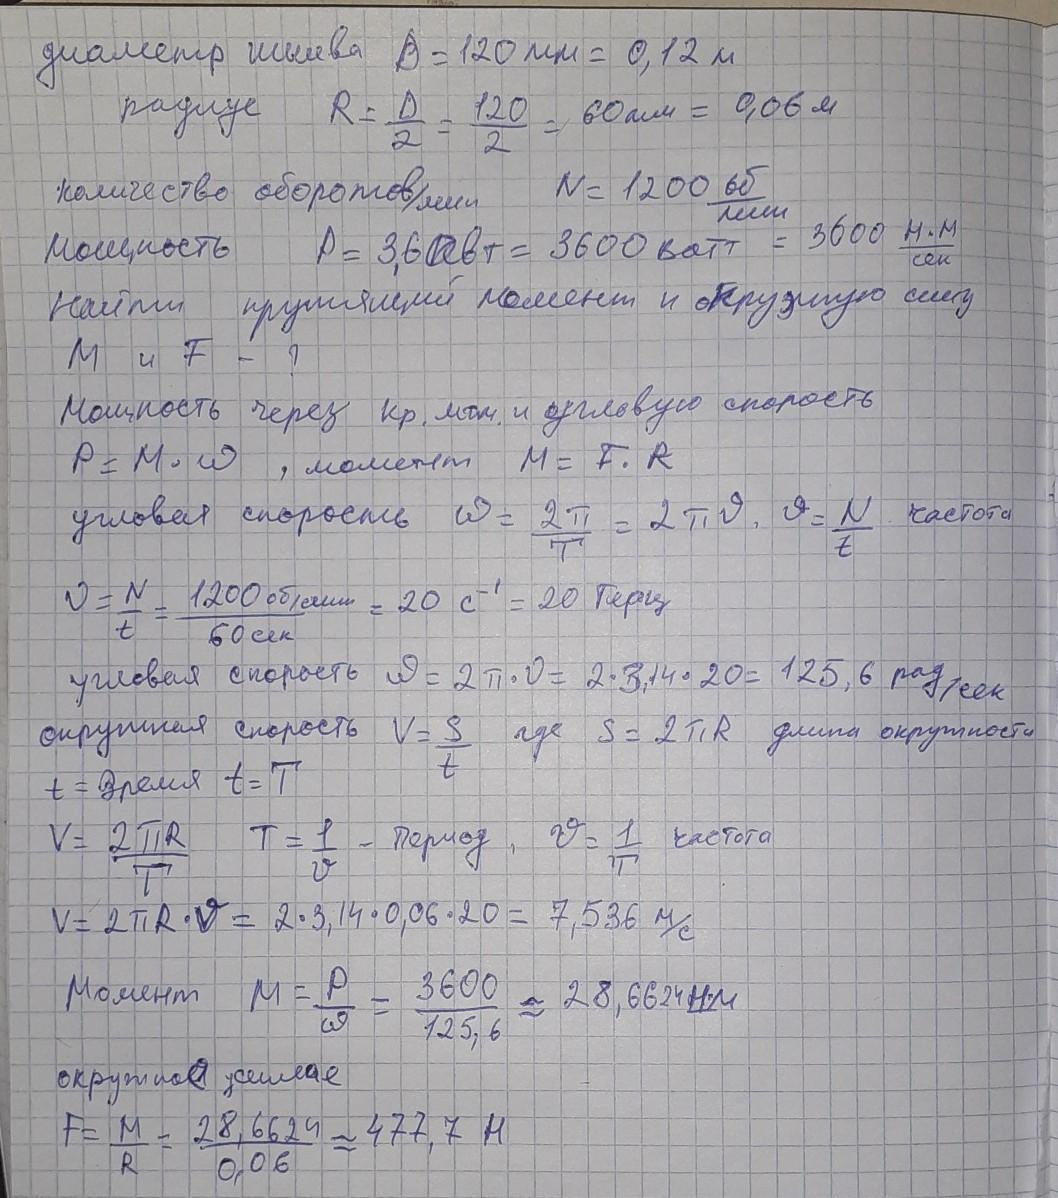 диаметр шкива D = 120 мм = 0,12 м
радиус R = D/2 = 120/2 = 60 мм = 0,06 м
количество оборотов/мин N = 1200 об/мин
Мощность P = 3,6 квт = 3600 ватт = 3600 Н·М/сек
Найти крутящий момент и окружную силу
M и F - ?
Мощность через кр. мом. и угловую скорость
P = M · ω , момент M = F · R
угловая скорость ω = 2π/T = 2πν. ν = N/t частота
ν = N/t = 1200 об/мин / 60 сек = 20 с⁻¹ = 20 Герц
угловая скорость ω = 2π·ν = 2·3,14·20 = 125,6 рад/сек
окружная скорость V = S/t где S = 2πR длина окружности
t = Время t = T
V = 2πR/T T = 1/ν - Период, ν = 1/T частота
V = 2πR·ν = 2·3,14·0,06·20 = 7,536 м/с
Момент M = P/ω = 3600/125,6 ≈ 28,6624 Н·м
окружное усилие
F = M/R = 28,6624/0,06 ≈ 477,7 Н